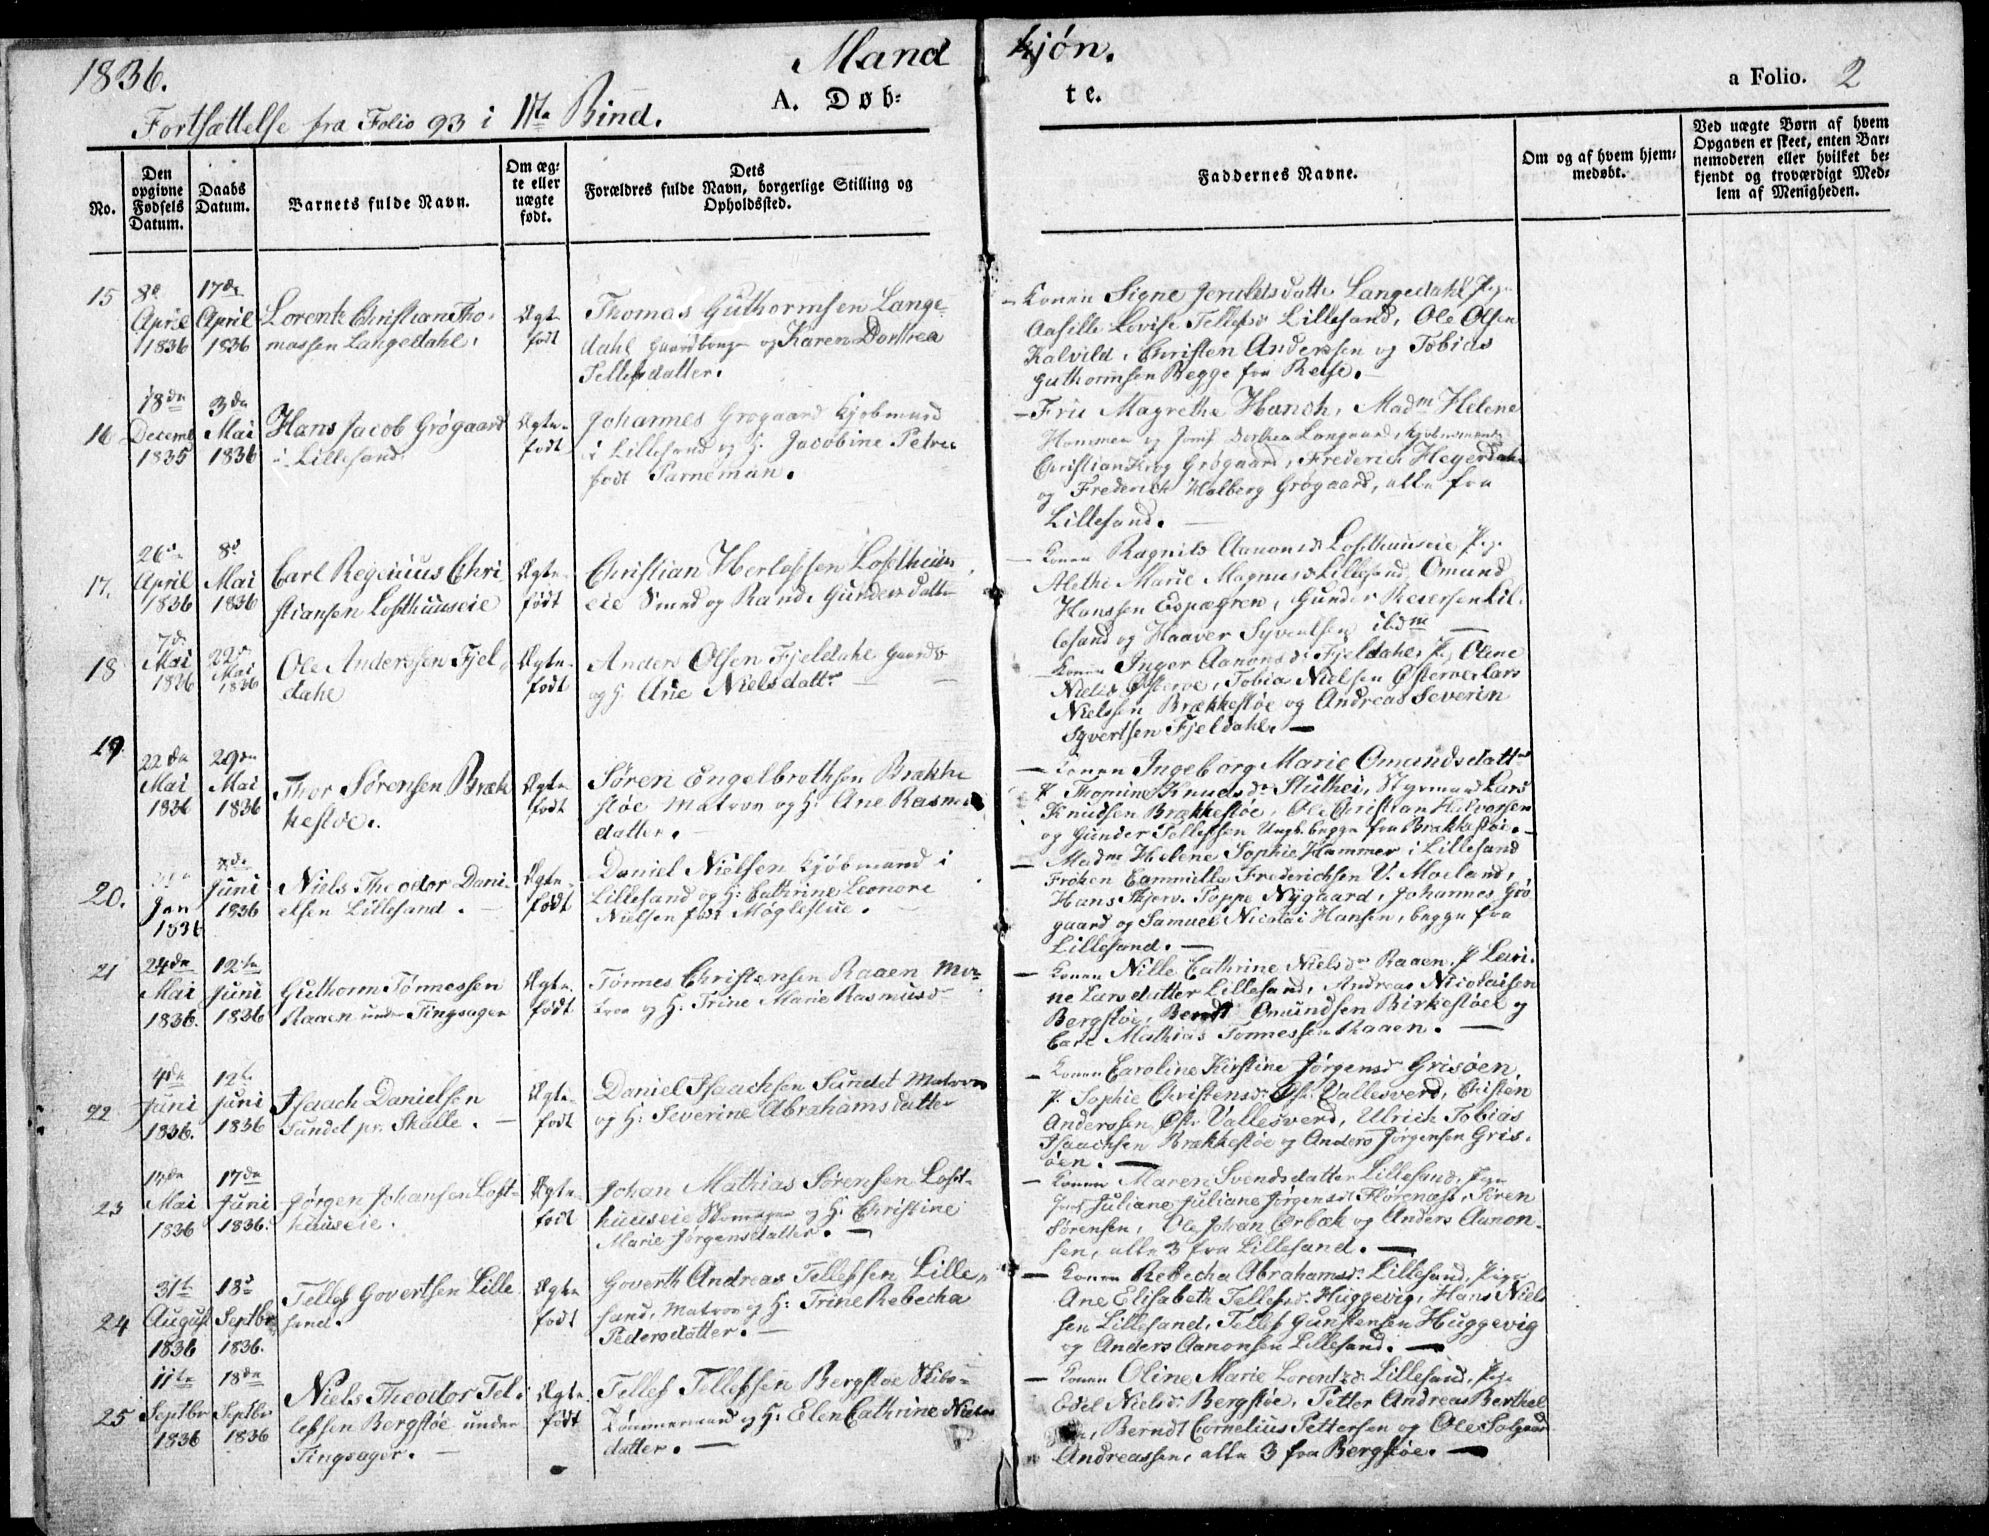 1836.
Mand kjøn.
a Folio. 2
A. Døb= te.
Fortsættelse fra Folio 93 i 1ste Bind.
No.
Den opgivne Fødsels Datum.
Daabs Datum.
Barnets fulde Navn.
Om ægte eller uægte født.
Dets Forældres fulde Navn, borgerlige Stilling og Opholdssted.
Faddernes Navne.
Om og af hvem hjemmedøbt.
Ved uægte Børn af hvem Opgaven er skeet, enten Barnemoderen eller hvilket bekjendt og troværdigt Medlem af Menigheden.
15
8de April 1836
17de April 1836
Lorentz Christian Tho-
massen Langedahl.
Ægte født
Thomas Guthormsen Lange-
dahl og Karen Dorthea
Tellefsdatter.
Konen Signe Langedahl, Pige
Lovise Tellefsd. Lillesand, Ole Olsen
Kalvild, Christen Andersen og Tobias
Guthormsen Begge fra
16
18de Decemb 1835
3de Mai 1836
Hans Jacob Grøgaard
i Lillesand
Ægte født
Johannes Grøgaard Kjøbmand
i Lillesand og H. Jacobine Petrea
født Parneman.
Frue Magrethe Hanch, Madm Helene
Hammer og Jomf Dorthea Kjøbmand
Christian Krog Grøgaard, Frederich Heyerdahl
og Frederich Holberg Grøgaard, alle fra
Lillesand.
17.
26de April 1836
8de Mai 1836
Carl Reginius Chri
stiansen Lofthuuseie
Ægte født
Christian Herlofsen Lofthuus
eie Smed og Rand. Gundersdatter
Konen Ragnild Aanonsd. Lofthuuseie Pige
Alethe Marie Magnusd. Lillesand, Omund
Hanssen Espægren, Gunder Reiersen Lil-
lesand og Haaver Syvertsen ibdm
18
7de Mai 1836
22de Mai 1836
Ole Anderssen Fjel
dahl
Ægte født
Anders Olsen Fjeldahl
og H. Ane Nielsdattr
Konen Inger Aanonsd. Fjeldahl, P. Oline
Nielsd. Østerøe, Tobias Nielsen Østerøe, Lars
Nielssen Brækkestøe og Andreas Severin
Syvertsen Fjeldahl.
19
22de Mai 1836
29de Mai 1836
Thor Sørensen Bræk
kestøe.
Ægte født
Søren Engelbrethsen Brække
støe Matros og H. Ane Rasmus
datter.
Konen Ingeborg Marie Omundsdattr
P. Thomine Knudsd. Styrmand Lars
Knudsen Brækkestøe, Ole Christian Halvorsen
og Gunder Tellefsen Ungk. begge fra Brækkestøe.
20.
Jan 1836
Juni 1836
Niels Theodor Dani-
elsen Lillesand.
Ægte født
Daniel Nielsen Kjøbmand i
Lillesand og H: Cathrine Leonore
Nielsen født Møglestue.
Madm Helene Sophie Hammer i Lillesand
Frøken Cammilla Frederichsen V. Moeland,
Hans Poppe Nygaard, Johannes Grø
gaard og Samuel Nicolai Hansen, begge fra
Lillesand.
21
24de Mai 1836.
12te Juni 1836
Guthorm Tønnessen
Raaen under Tingsager
Ægte født
Tønnes Christensen Raaen Ma-
tros og H. Trine Marie Rasmusd
Konen Nille Cathrine Nielsd. Raaen. P
ne Larsdatter Lillesand, Andreas Nicolaisen
Bergstøe, Berndt Omundsen Birkestøel og
Carl Mathias Tønnessen Raaen.
22
4de Juni 1836.
12te Juni 1836
Isaach Danielsen
Sundet pr. Skalle.
Ægte født
Daniel Isaachsen Sundet Matros
og H: Severine Abrahamsdatter
Konen Caroline Kirstine Jørgensd Grisøen,
P. Sophie Christensd. Øst. Vallesverd, Christen
Anderssen Østr. Vallesverd, Ulrich Tobias
Isaachsen Brækkestøe og Anders Jørgensen Gris-
øen.
23
Mai 1836
17de Juni 1836.
Jørgen Johansen Loft-
huuseie.
Ægte født
Johan Mathias Sørensen Loft-
huuseie og H. Christine
Marie Jørgensdatter.
Konen Maren Svendsdatter Lillesand, Pige
Juliane Juliane Jørgensd Flørenæs, Søren
Sørensen, Ole Johan Ørbæk og Anders Aanon-
sen, alle 3 fra Lillesand.
24
31te August 1836
18de Septbr 1836.
Tellef Govertsen Lille
sand.
Ægte født
Goverth Andreas Tellefsen Lille-
sand, Matros og H: Trine Rebecha
Pedersdatter.
Konen Rebecha Abrahamsd. Lillesand, Pige
Ane Elisabeth Tellefsd. Huggevig, Hans Niel-
sen Lillesand, Tellef Gunstensen Huggevig
og Anders Aanonsen Lillesand.
25
11te Septbr 1836
18de Septbr 1836
Niels Theodor Tel-
lefsen Bergstøe under
Tingsager.
Ægte født
Tellef Tellefsen Bergstøe Skibs-
tømmermand og H: Elen Cathrine Niels
datter.
Konen Oline Marie Lorentzd. Lillesand, Pige
Edel Nielsd. Bergstøe, Petter Andreas Berthel
sen, Berndt Cornelius Pettersen og Ole
Andreassen, alle 3 fra Bergstøe.